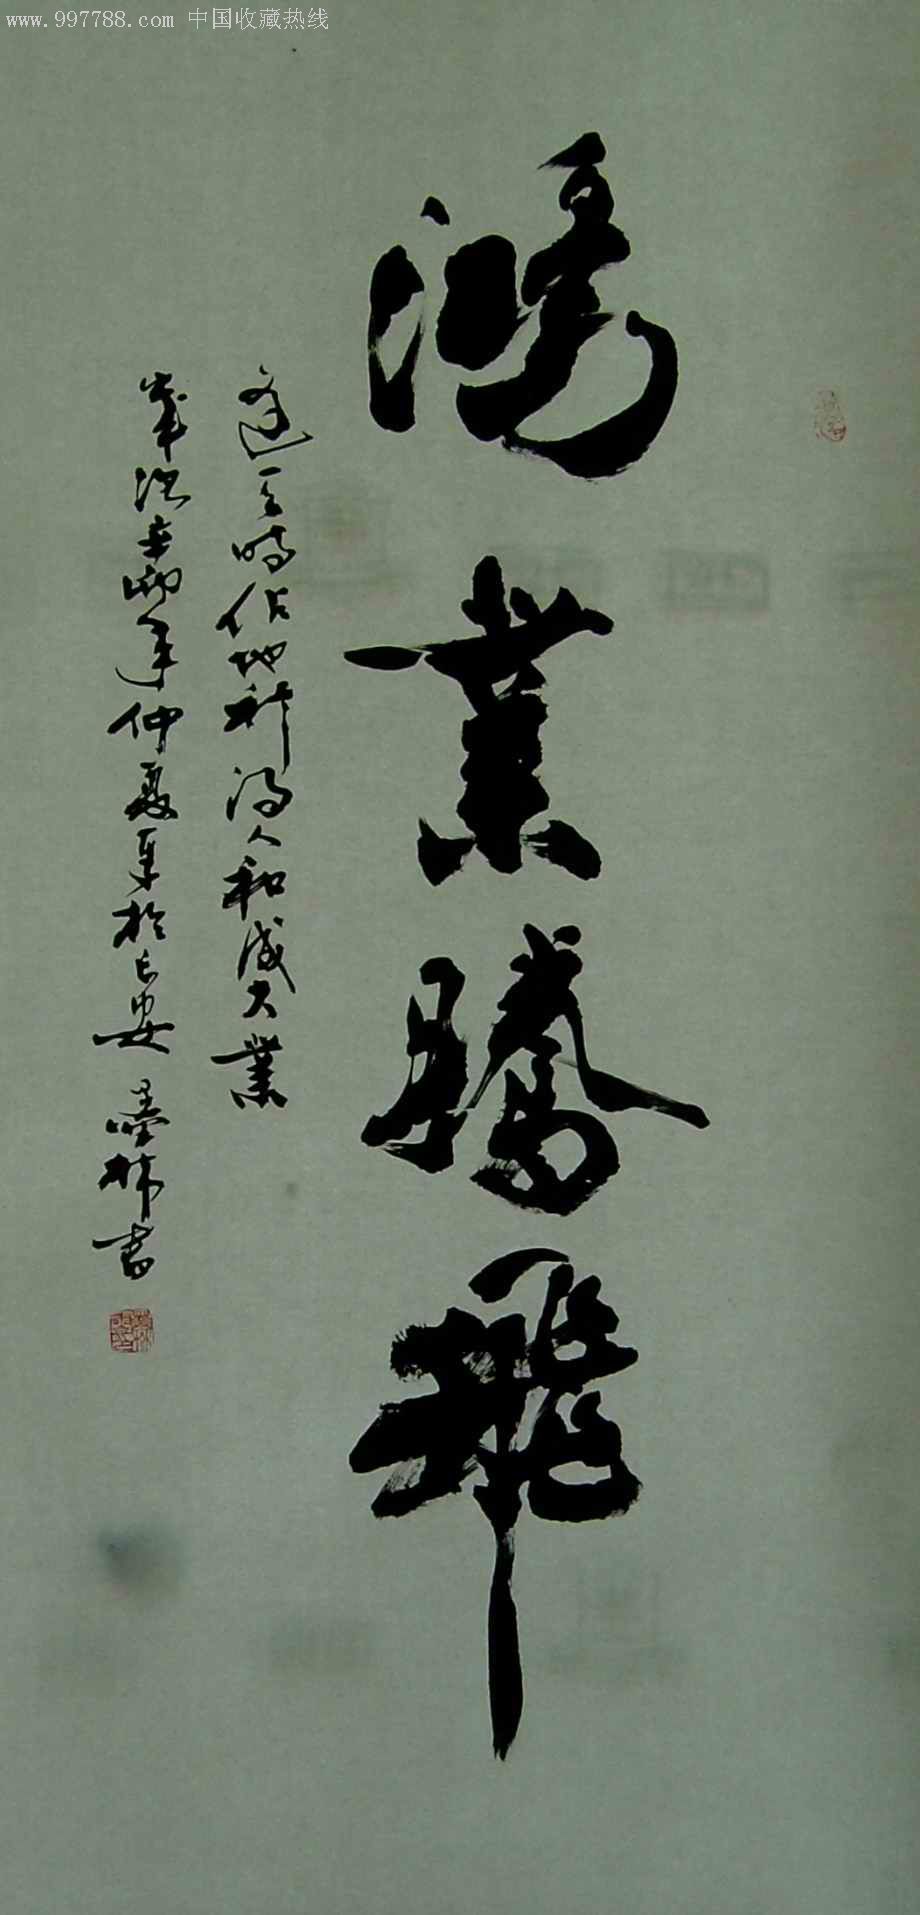 www.997788.com 中国收藏热线
鴻業騰飛
逢天時佔地利得人和成大業
歲次辛卯年仲夏月於長安 墨林書